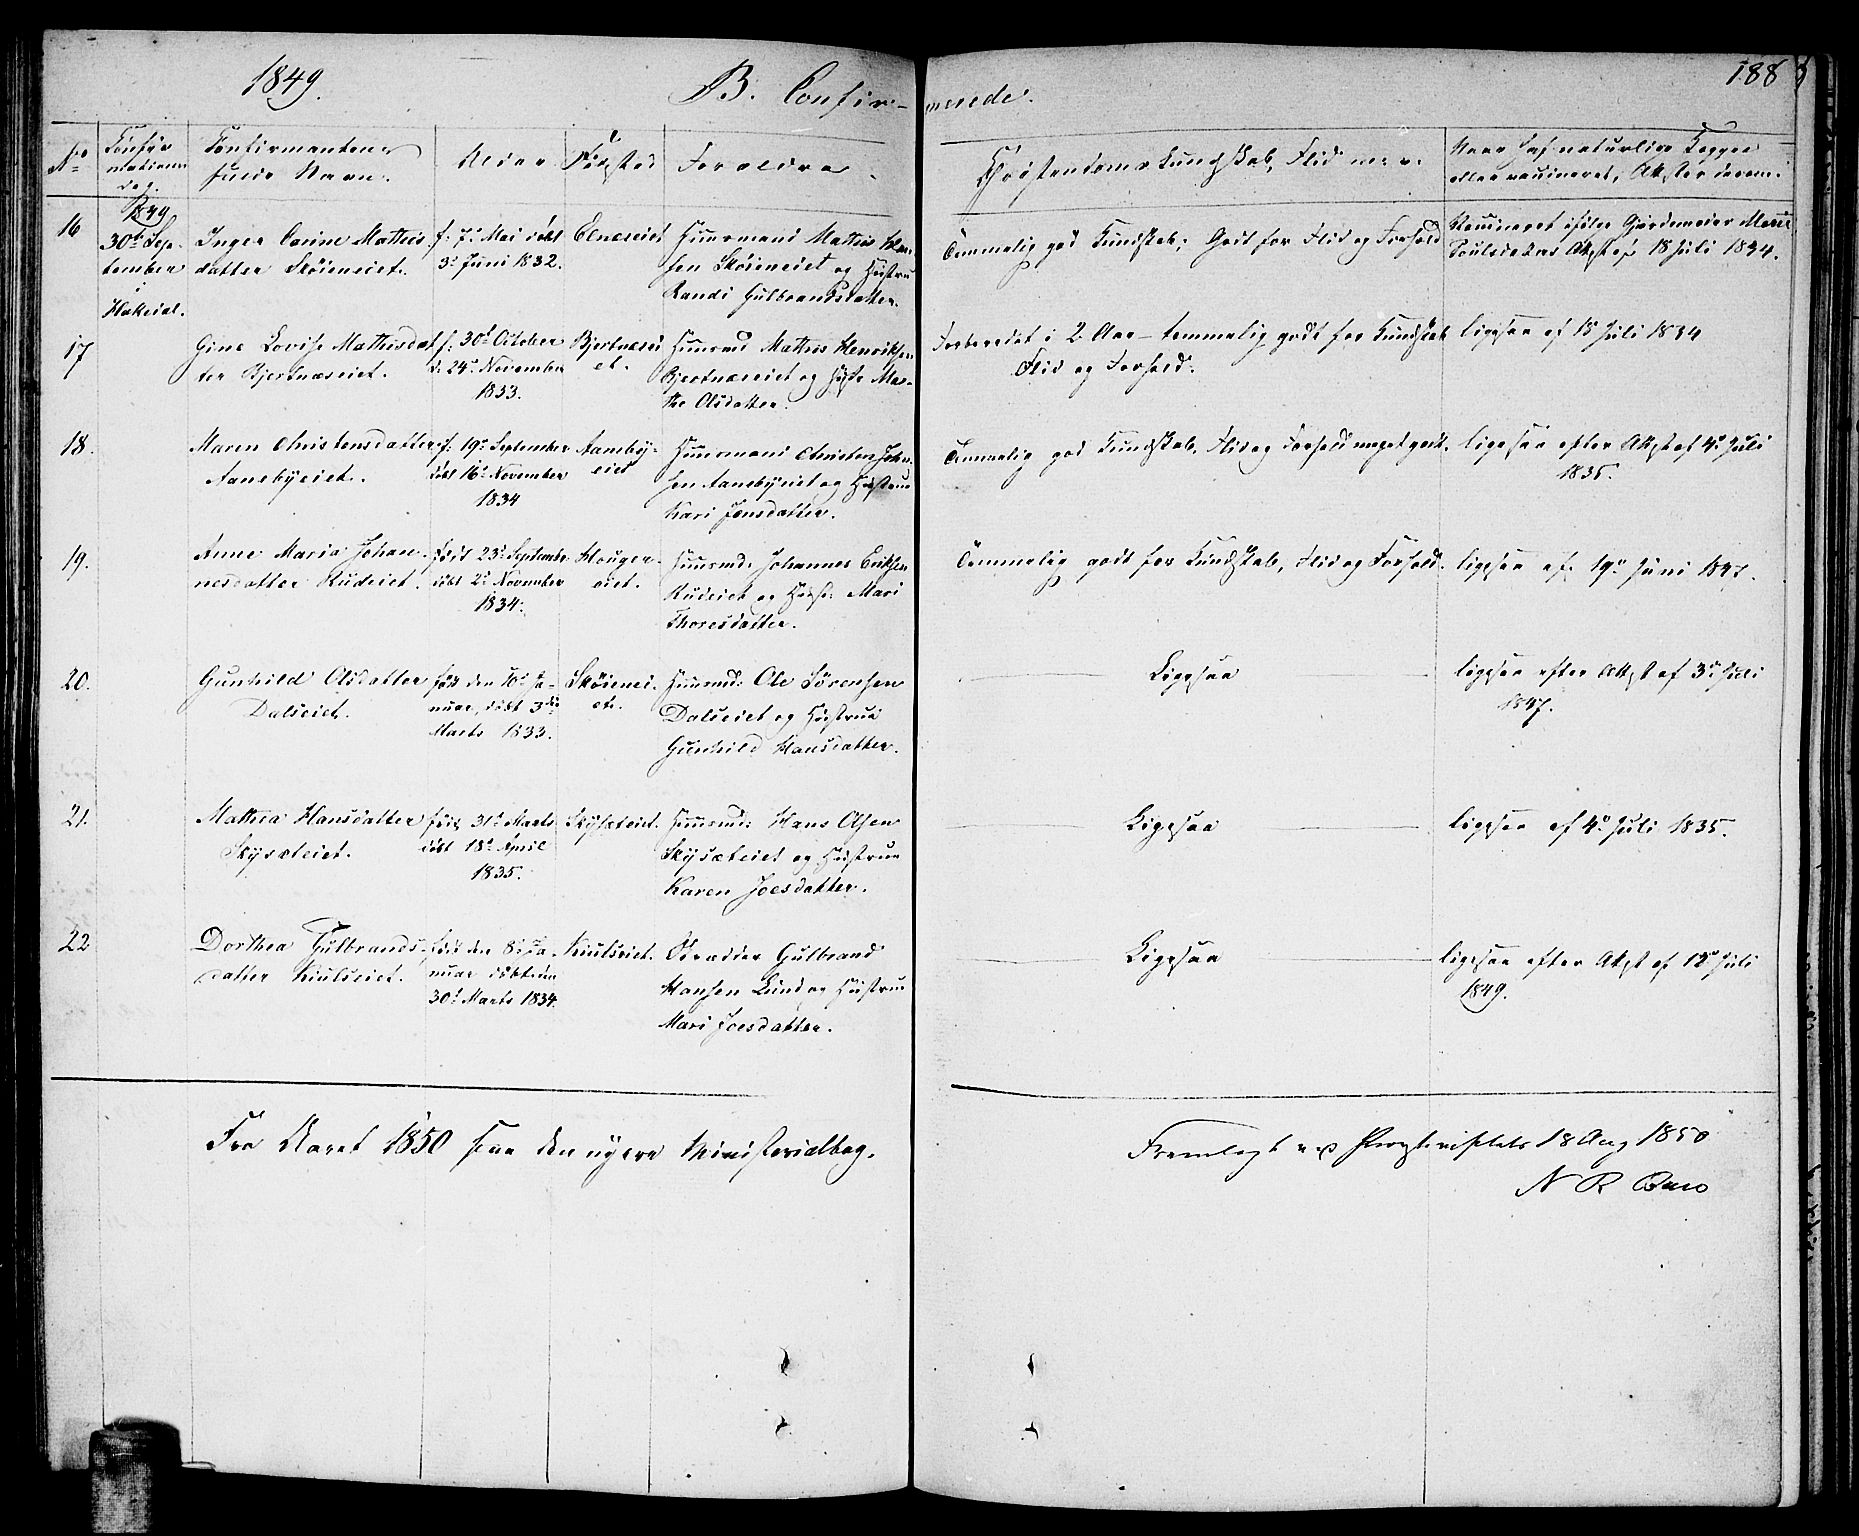 1849.
B. Confir-
merede.
188
No
Confir
mations
dag.
Confirmantens
fulde Navn.
Alder
Fødsted
Forældre.
Christendoms Kundskab, Flid m. v.
Naar haft naturlige Kopper
eller vaccineret, Attester derom.
16
1849
30te Sep-
tember
i
Hakedal.
Inger Carine Mathis
datter Skøieneiet.
f: 7de Mai døbt
3de Juni 1832.
Elnæseiet
Huusmand Mathis Han
sen Skøieneiet og Hustru
Randi Gulbrandsdatter.
Temmelig god Kundskab; Godt for Flid og Forhold
Vaccineret ifølge Gjordemoder Marie
Poulsdatters Attest af 18 Juli 1834.
17
Gine Lovise Mathisdat
ter Bjertnæseiet.
f: 30te October
d. 24de November
1833.
Bjertnæsei
et.
Huusmd Mathis Henriksen
Bjertnæseiet og Hust: Mar-
the Olsdatter.
Forberedet i 2 Aar - temmelig godt for Kundskab
Flid og Forhold.
ligesaa af 15 Juli 1834
18.
Maren Christensdatter
Aanebyeiet.
f: 19de September
døbt 16de November
1834
Aaneby-
eiet
Huusmand Christen Johan
sen Aanebyeiet og Hustru
Kari Jensdatter.
Temmelig god Kundskab, Flid og Forhold meget godt.
ligesaa efter Attest af 4de Juli
1835.
19.
Anne Maria Johan-
nesdatter Rudeiet.
født 23de September
døbt 2de November
1834.
Houger-
eiet.
Huusmd: Johannes Eriksen
Rudeiet og Hust: Mari
Thoresdatter.
Temmelig godt for Kundskab, Flid og Forhold.
ligesaa af 19de Juni 1847.
20.
Gunhild Olsdatter
Dalseiet.
født den 10de Ja-
nuar, døbt 3die
Marts 1833.
Skøienei-
et.
Huusmd: Ole Sørensen
Dalseiet og Hustrue
Gunhild Hansdatter.
Ligesaa
ligesaa efter Attst af 3de Juli
1847.
21.
Mathea Hansdatter
Skysæteiet.
født 31te Marts
døbt 18de April
1835.
Skysæteiet.
Huusmd: Hans Olsen
Skysæteiet og Hustrue
Karen Joesdatter.
Ligesaa
ligesaa af 4de Juli 1835.
22
Dorthea Gulbrands-
datter Kiulseiet.
født den 8de Ja-
nuar døbt den
30te Marts 1834.
Kiulseiet.
Gulbrand
Hansen Lund og Hustrue
Mari Joesdatter.
Ligesaa
ligesaa efter Attst af 12te Juli
1849.
Fra Aaret 1850 see den nyere Ministerialbog.
Fremlagt ved 18 Aug 1850
N R